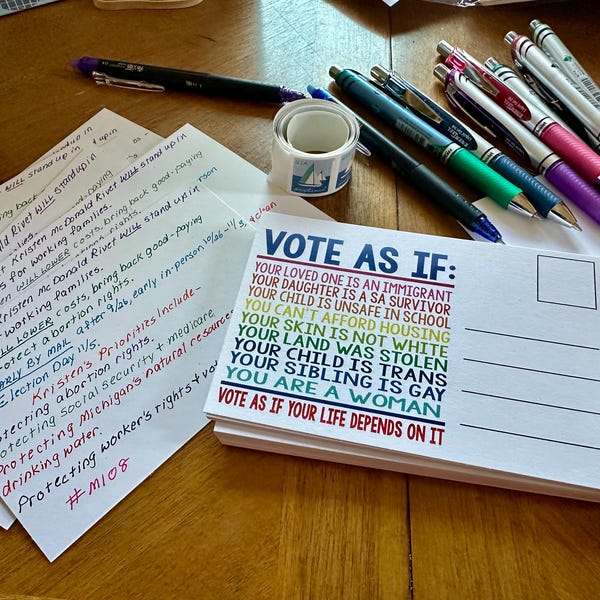 WILL stand up in
Kristen McDonald Rivet WILL stand up in
for working families.
WILL LOWER costs, bring back good-paying
Kristen McDonald Rivet WILL stand up in person
working families.
LOWER costs, bring back good-paying
protect abortion rights.
EARLY BY MAIL after 9/26, early in-person 10/26-11/3,
Election Day 11/5.
Kristen's Priorities Include-
protecting abortion rights.
protecting social security + medicare
Protecting Michigan's natural resources
drinking water.
Protecting worker's rights +
#MI08
clean
USA
VOTE AS IF:
YOUR LOVED ONE IS AN IMMIGRANT
YOUR DAUGHTER IS A SA SURVIVOR
YOUR CHILD IS UNSAFE IN SCHOOL
YOU CAN'T AFFORD HOUSING
YOUR SKIN IS NOT WHITE
YOUR LAND WAS STOLEN
YOUR CHILD IS TRANS
YOUR SIBLING IS GAY
YOU ARE A WOMAN
VOTE AS IF YOUR LIFE DEPENDS ON IT